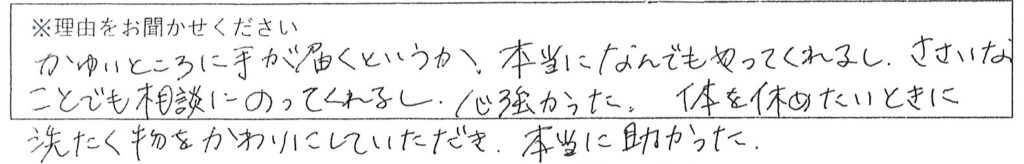 ※理由をお聞かせください
かゆいところに手が届くというか、本当になんでもやってくれるし、ささいな
ことでも相談にのってくれるし、心強かった。体を休めたいときに
洗たく物をかわりにしていただき、本当に助かった.